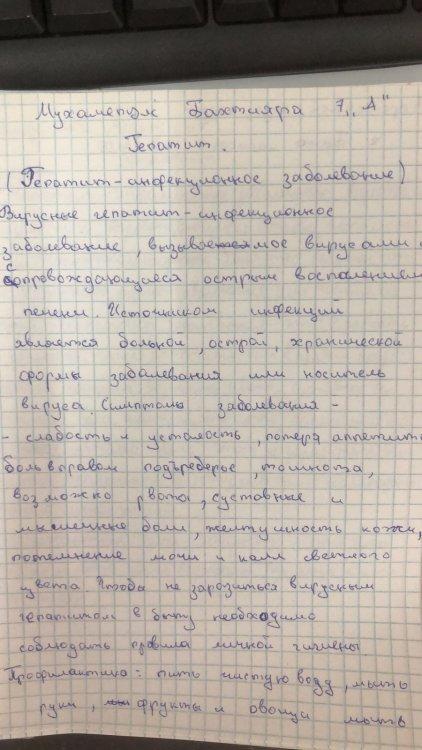 Бахтияра 7 „А"
Гепатит.
(Гепатит-инфекционное заболевание)
Вирусные гепатит-инфекционное
заболевание, вызываемое вирусами и
сопровождающиеся острым воспалением
печени. Источником инфекций
является больной, острой, хранической
формы забалевания или носитель
вируса. Симптомы заболевания -
- слабость и усталость, потеря аппетита
боль вправом подъреберье, тошнота,
возможно рвота, суставные и
мышечные боли, желтушность кожи,
потемнение мочи и кала светлого
цвета. Чтобы не зарозиться вирусным
гепатитом в быту необходимо
соблюдать правила личной гигиены.
Профилактика: пить чистую воду, мыть
руки, фрукты и овощи мыть